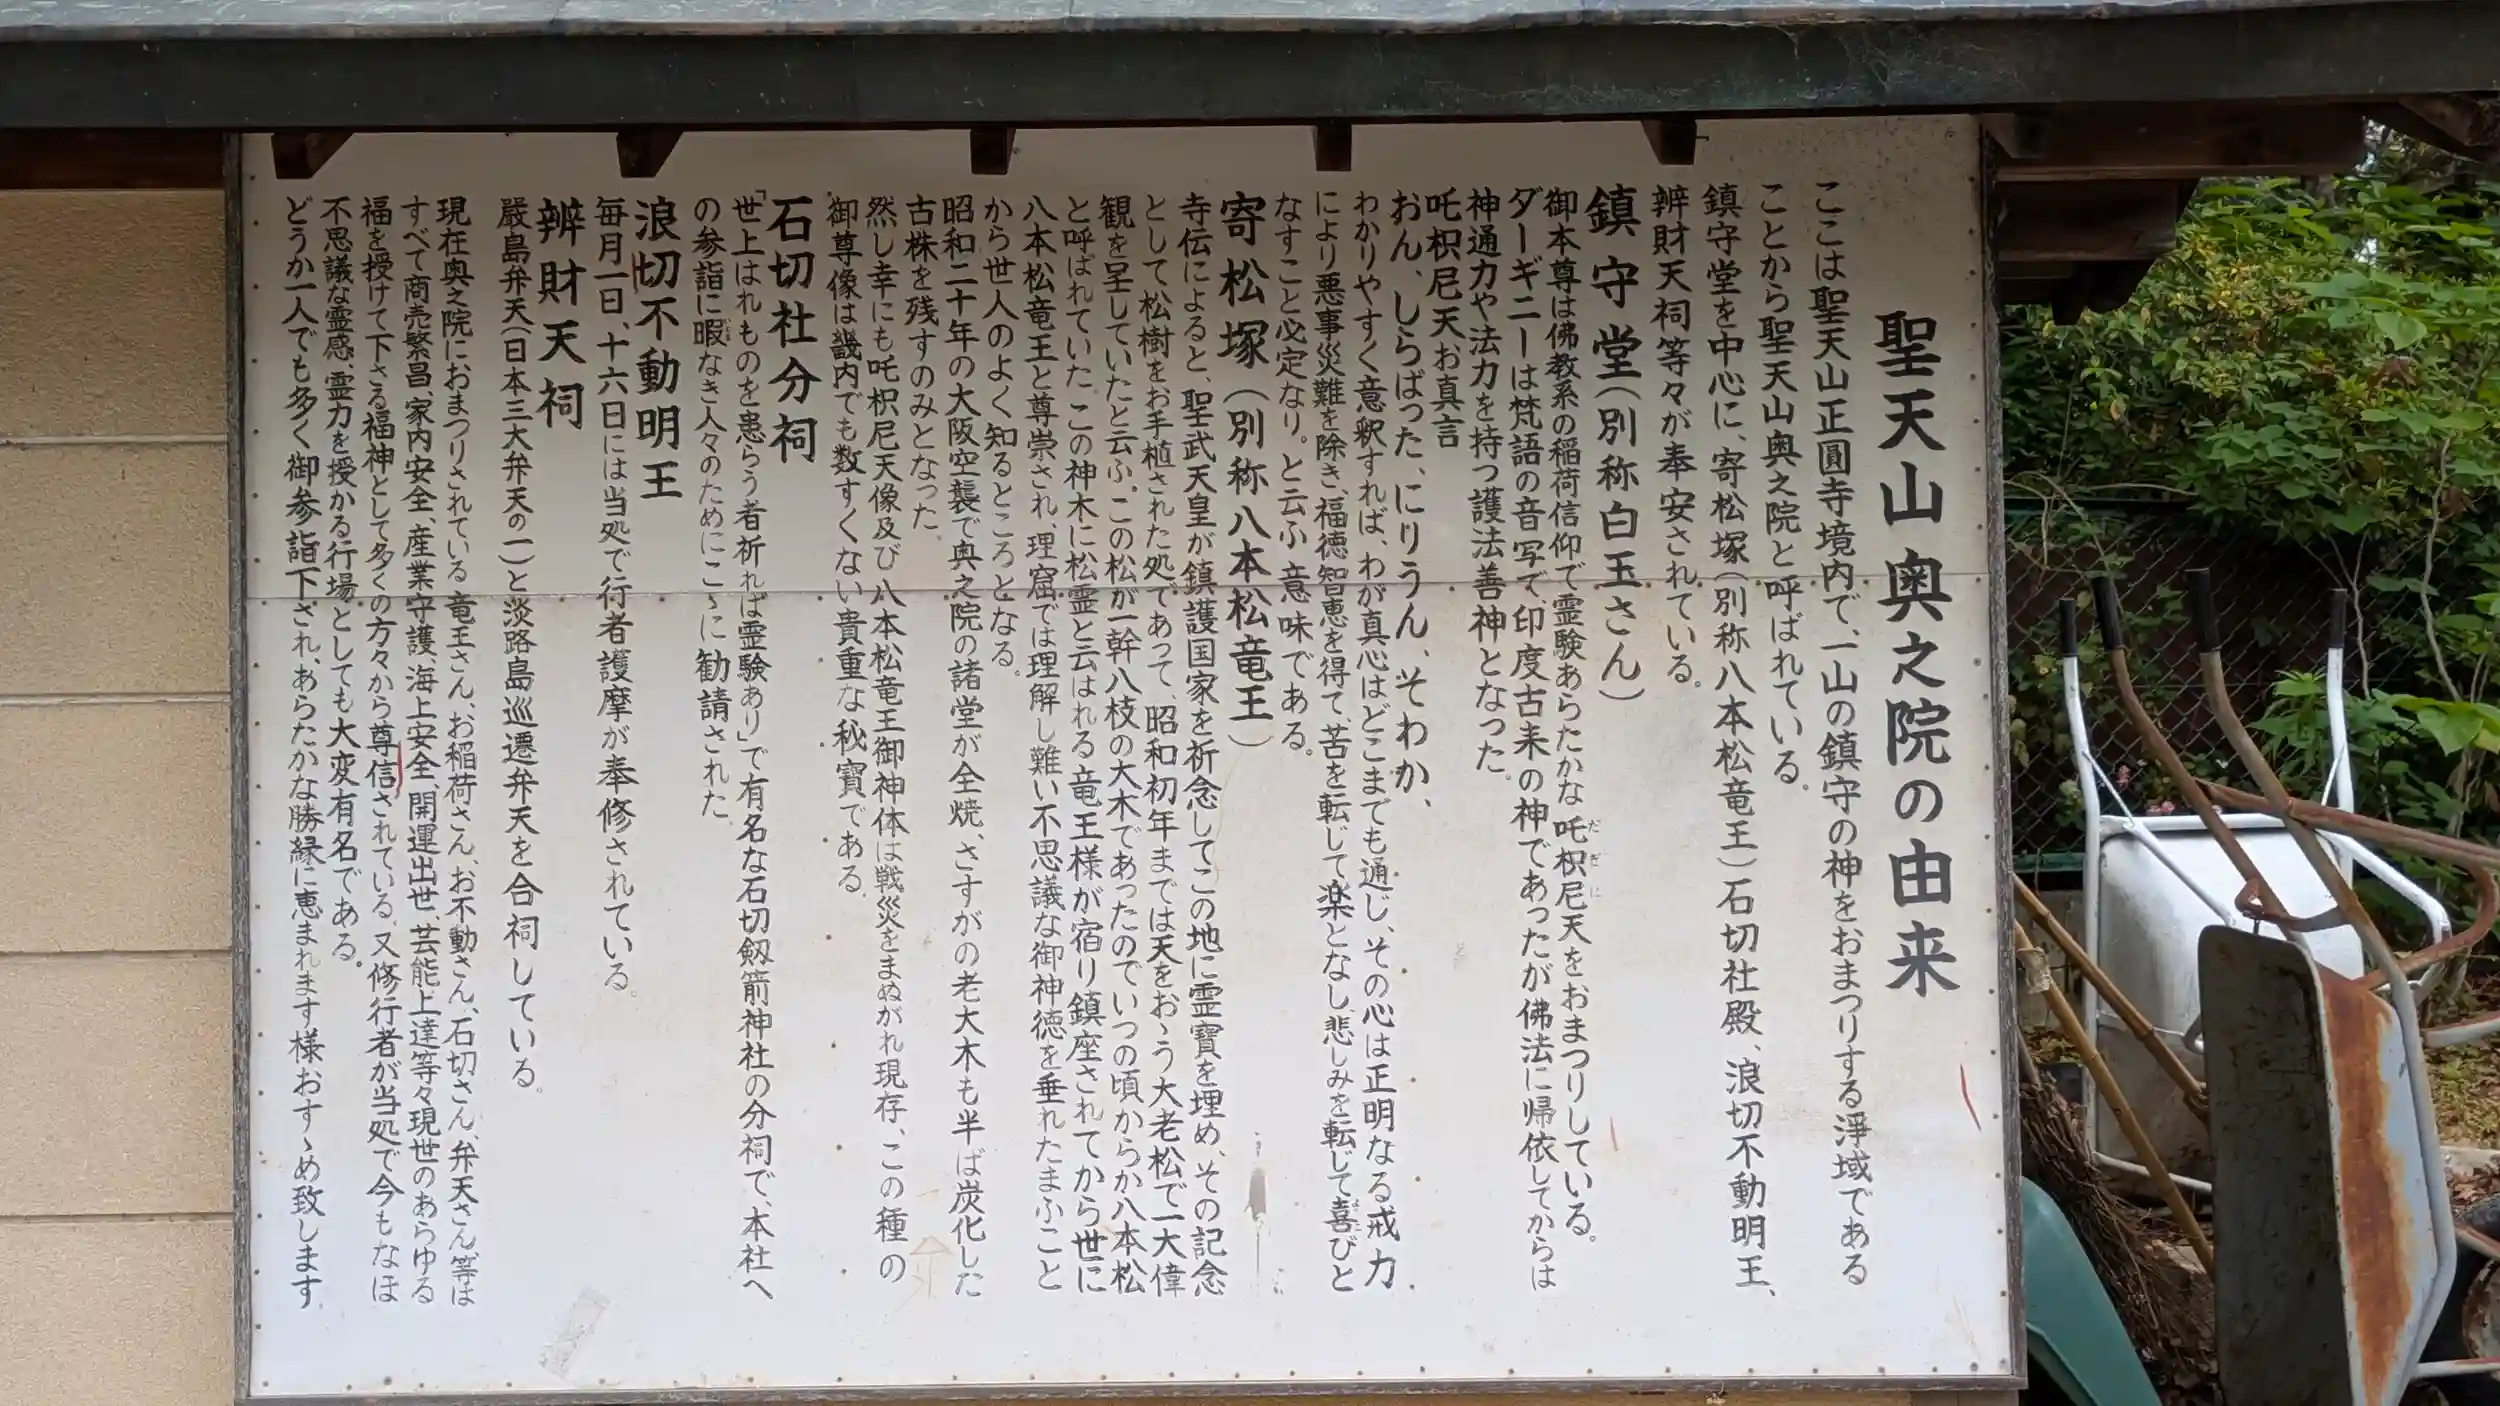 聖天山奥之院の由来
ここは聖天山正圓寺境内で、一山の鎮守の神をおまつりする淨域である
ことから聖天山奥之院と呼ばれている。
鎮守堂を中心に、寄松塚(別称八本松竜王)石切社殿、浪切不動明王、
辨財天祠等々が奉安されている。
鎮守堂(別称白玉さん)
御本尊は佛教系の稲荷信仰で霊験あらたかな吒枳尼天をおまつりしている。
だぎに
ダーギニーは梵語の音写で、印度古来の神であったが佛法に帰依してからは
神通力や法力を持つ護法善神となった。
吒枳尼天お真言
おん、しらばった、にりうん、そわか、
わかりやすく意釈すれば、わが真心はどこまでも通じ、その心は正明なる戒力
により悪事災難を除き、福徳智恵を得て、苦を転じて楽となし、悲しみを転じて喜びと
なすこと必定なり。と云ふ意味である。
寄松塚(別称八本松竜王)
寺伝によると、聖武天皇が鎮護国家を祈念してこの地に霊寶を埋め、その記念
として松樹をお手植された処であって、昭和初年までは天をおゝう大老松で一大偉
観を呈していたと云ふ。この松が一幹八枝の大木であったのでいつの頃からか八本松
と呼ばれていた。この神木に松霊と云はれる竜王様が宿り鎮座されてから世に
八本松竜王と尊崇され、理窟では理解し難い不思議な御神徳を垂れたまふこと
から世人のよく知るところとなる。
昭和二十年の大阪空襲で奥之院の諸堂が全焼、さすがの老大木も半ば炭化した
古株を残すのみとなった。
然し幸にも吒枳尼天像及び八本松竜王御神体は戦災をまぬがれ現存、この種の
御尊像は畿内でも数すくない貴重な秘寶である。
石切社分祠
「世上はれものを患らう者祈れば霊験あり」で有名な石切劔箭神社の分祠で、本社へ
の参詣に暇なき人々のためにこゝに勧請された。
浪切不動明王
毎月一日、十六日には当処で行者護摩が奉修されている。
辨財天祠
嚴島弁天(日本三大弁天の一)と淡路島巡遷弁天を合祠している。
現在奥之院におまつりされている竜王さん、お稲荷さん、お不動さん、石切さん、弁天さん等は
すべて商売繁昌、家内安全、産業守護、海上安全、開運出世、芸能上達等々現世のあらゆる
福を授けて下さる福神として多くの方々から尊信されている。又修行者が当処で今もなほ
不思議な霊感、霊力を授かる行場としても大変有名である。
どうか一人でも多く御参詣下され、あらたかな勝縁に恵まれます様おすゝめ致します。